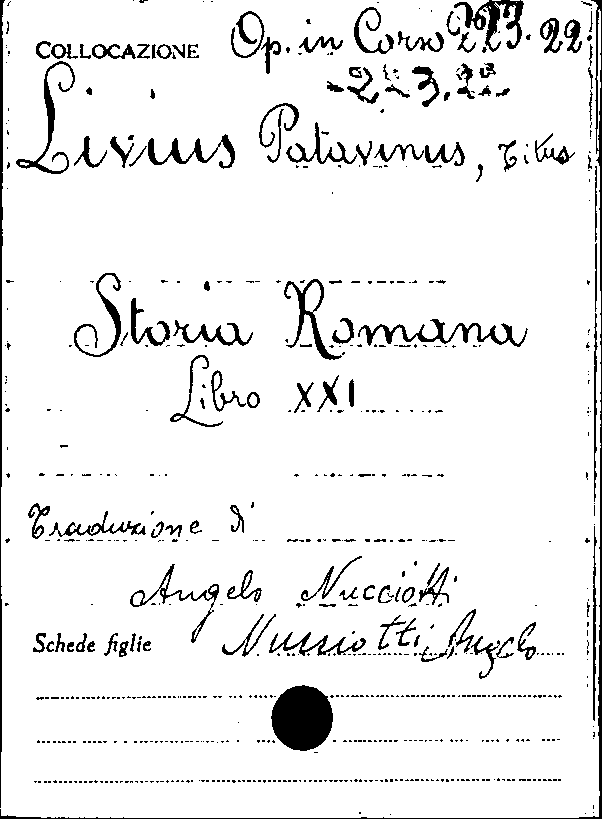 COLLOCAZIONE Op. in Corso 223.22
223.22
Livius Patavinus, Titus
Storia Romana
Libro XXI
Traduzione di
Angelo Nucciotti
Schede figlie Nucciotti Angelo